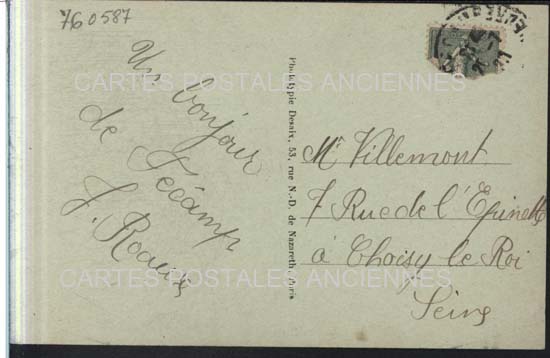 760587
Un bonjour
de Fécamp
J.
Phototypie Desaix, 53, rue N.-D. de Nazareth, Paris
Mr Villemont
7 Rue de l'Epinette
à Choisy le Roi
Seine
CARTES POSTALES ANCIENNES
CARTES POSTALES ANCIENNES